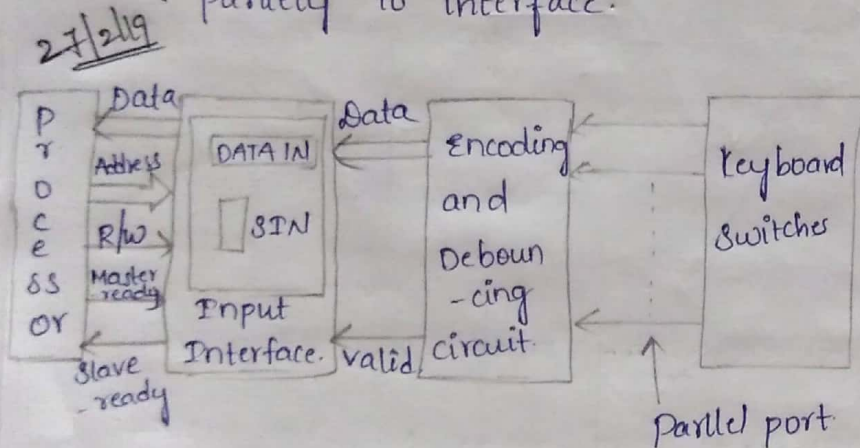 parallely to interface.
27/2/19
Processor
Data
Address
R/W
Master
-ready
Slave
-ready
DATA IN
SIN
Input
Interface.
Data
valid
Encoding
and
Deboun
-cing
circuit.
Keyboard
Switches
Parllel port.